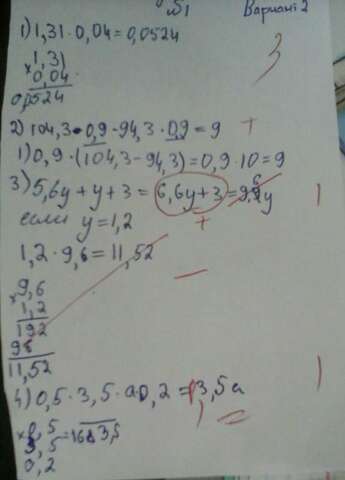 №1 Вариант 2
1) 1,31·0,04=0,0524
×1,31
0,04
0,0524
3
2) 104,3·0,9-94,3·0,9=9 +
1) 0,9·(104,3-94,3)=0,9·10=9
3) 5,6y+y+3=6,6y+3=9,6y
если y=1,2 +
1,2·9,6=11,52
×9,6
1,2
192
96
11,52
4) 0,5·3,5·a·0,2=3,5a
×0,5
3,5
0,2